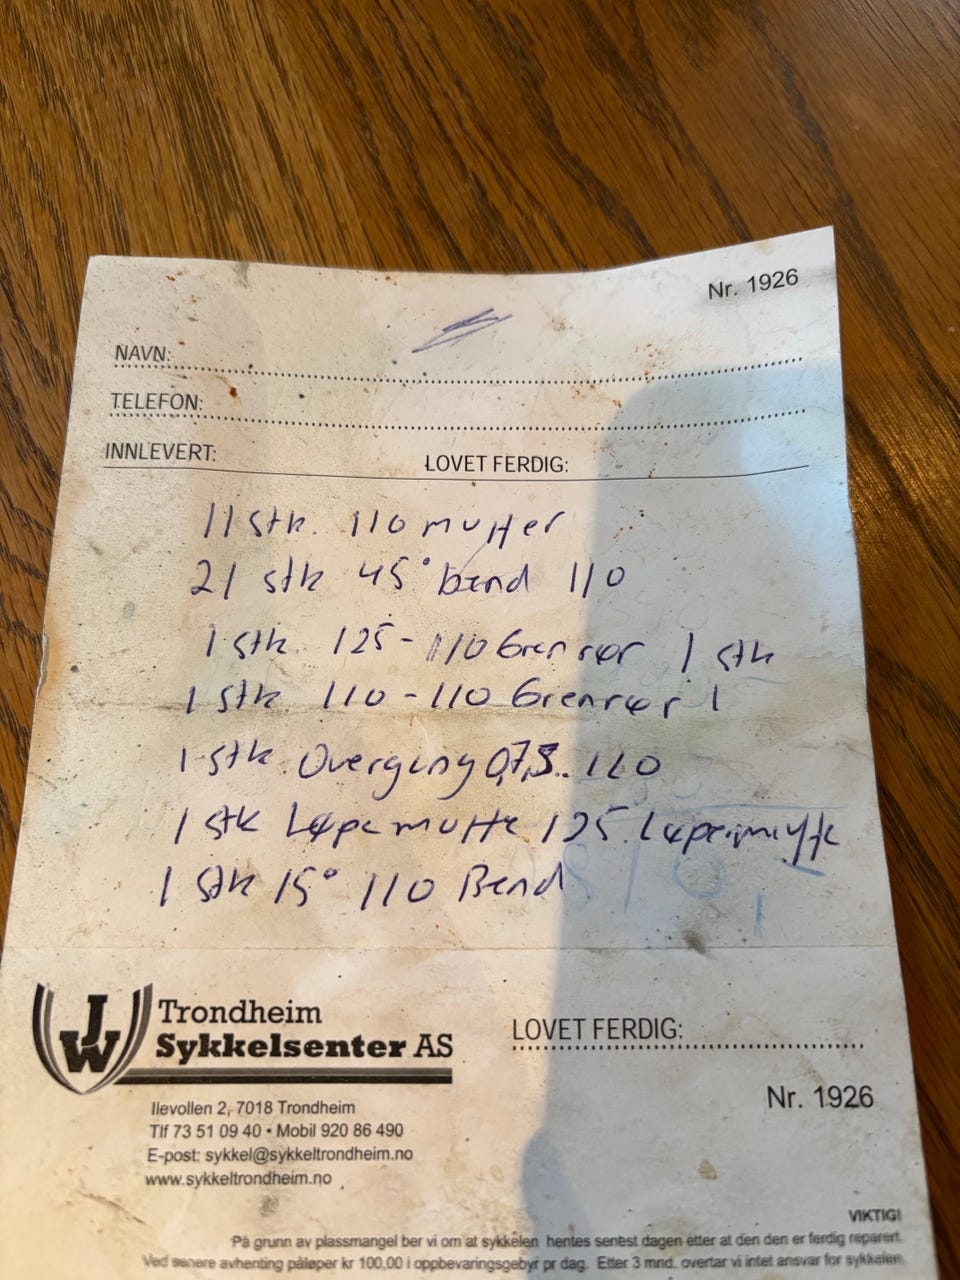 Nr. 1926
NAVN:
TELEFON:
INNLEVERT: LOVET FERDIG:
11 stk. 110 muffer
21 stk 45° bend 110
1 stk 125-110 Grenrør 1 stk
1 stk 110-110 Grenrør 1
1 stk Overgang 110
1 stk Løpemuffe 125 Løpemuffe
1 stk 15° 110 Bend
JW Trondheim
Sykkelsenter AS
LOVET FERDIG:
Nr. 1926
Ilevollen 2, 7018 Trondheim
Tlf 73 51 09 40 • Mobil 920 86 490
E-post: sykkel@sykkeltrondheim.no
www.sykkeltrondheim.no
VIKTIG!
På grunn av plassmangel ber vi om at sykkelen hentes senest dagen etter at den den er ferdig reparert.
Ved senere avhenting påløper kr 100,00 i oppbevaringsgebyr pr dag. Etter 3 mnd. overtar vi intet ansvar for sykkelen.